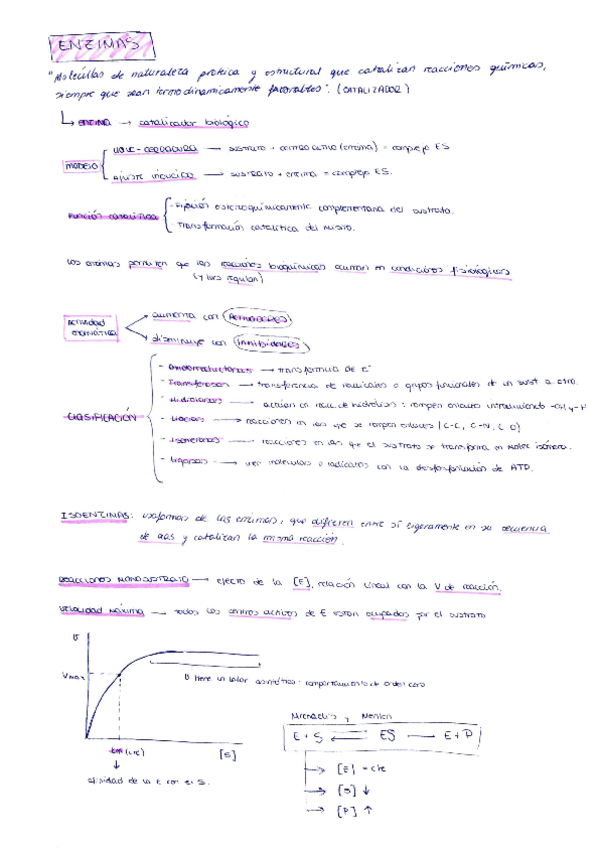 ENZIMAS
"Moléculas de naturaleza proteica y estructural que catalizan reacciones químicas,
siempre que sean termodinamicamente favorables". (CATALIZADOR)
ENZIMA → catalizador biológico
MODELO
LLAVE-CERRADURA → sustrato + centro activo (enzima) = complejo ES
Ajuste inducido → sustrato + enzima = complejo ES.
Función catalítica
- Fijación estereoquímicamente complementaria del sustrato.
- Transformación catalítica del mismo.
Las enzimas permiten que las reacciones bioquímicas ocurran en condiciones fisiológicas
(y las regulan)
Actividad enzimática
aumenta con ACTIVADORES
disminuye con Inhibidores
CLASIFICACIÓN
- Oxidoreductasas → transferencia de e-
- Transferasas → transferencia de radicales o grupos funcionales de un sust a otro.
- Hidrolasas → actúan en reacc. de hidrólisis: rompen enlaces introduciendo -OH y -H
- Liasas → reacciones en las que se rompen enlaces (C-C, C-N, C-O)
- Isomerasas → reacciones en las que el sustrato se transforma en molec isómera.
- Ligasas → unen moléculas o radicales con la desfosforilación de ATP.
ISOENZIMAS: isoformas de las enzimas, que difieren entre sí ligeramente en su secuencia
de aas y catalizan la misma reacción.
REACCIONES MONOSUSTRATO → efecto de la [E], relación lineal con la V de reacción.
Velocidad máxima → todos los centros activos de E están ocupados por el sustrato
v
Vmax
v tiene un valor asintótico: comportamiento de orden cero
km (cte)
[S]
afinidad de la E con el S.
Michaelis y Menten
E + S ⇌ ES → E + P
→ [E] = cte
→ [S] ↓
→ [P] ↑